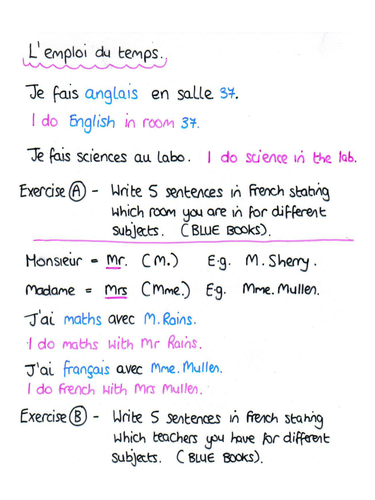 L'emploi du temps.
Je fais anglais en salle 37.
I do English in room 37.
Je fais sciences au labo. I do science in the lab.
Exercise A - Write 5 sentences in French stating
which room you are in for different
subjects. (BLUE BOOKS).
Monsieur = Mr. (M.) E.g. M. Sherry.
Madame = Mrs (Mme.) Eg. Mme. Mullen.
J'ai maths avec M. Rains.
I do maths with Mr Rains.
J'ai français avec Mme. Mullen.
I do French with Mrs Mullen.
Exercise B - Write 5 sentences in French stating
which teachers you have for different
subjects. (BLUE BOOKS).